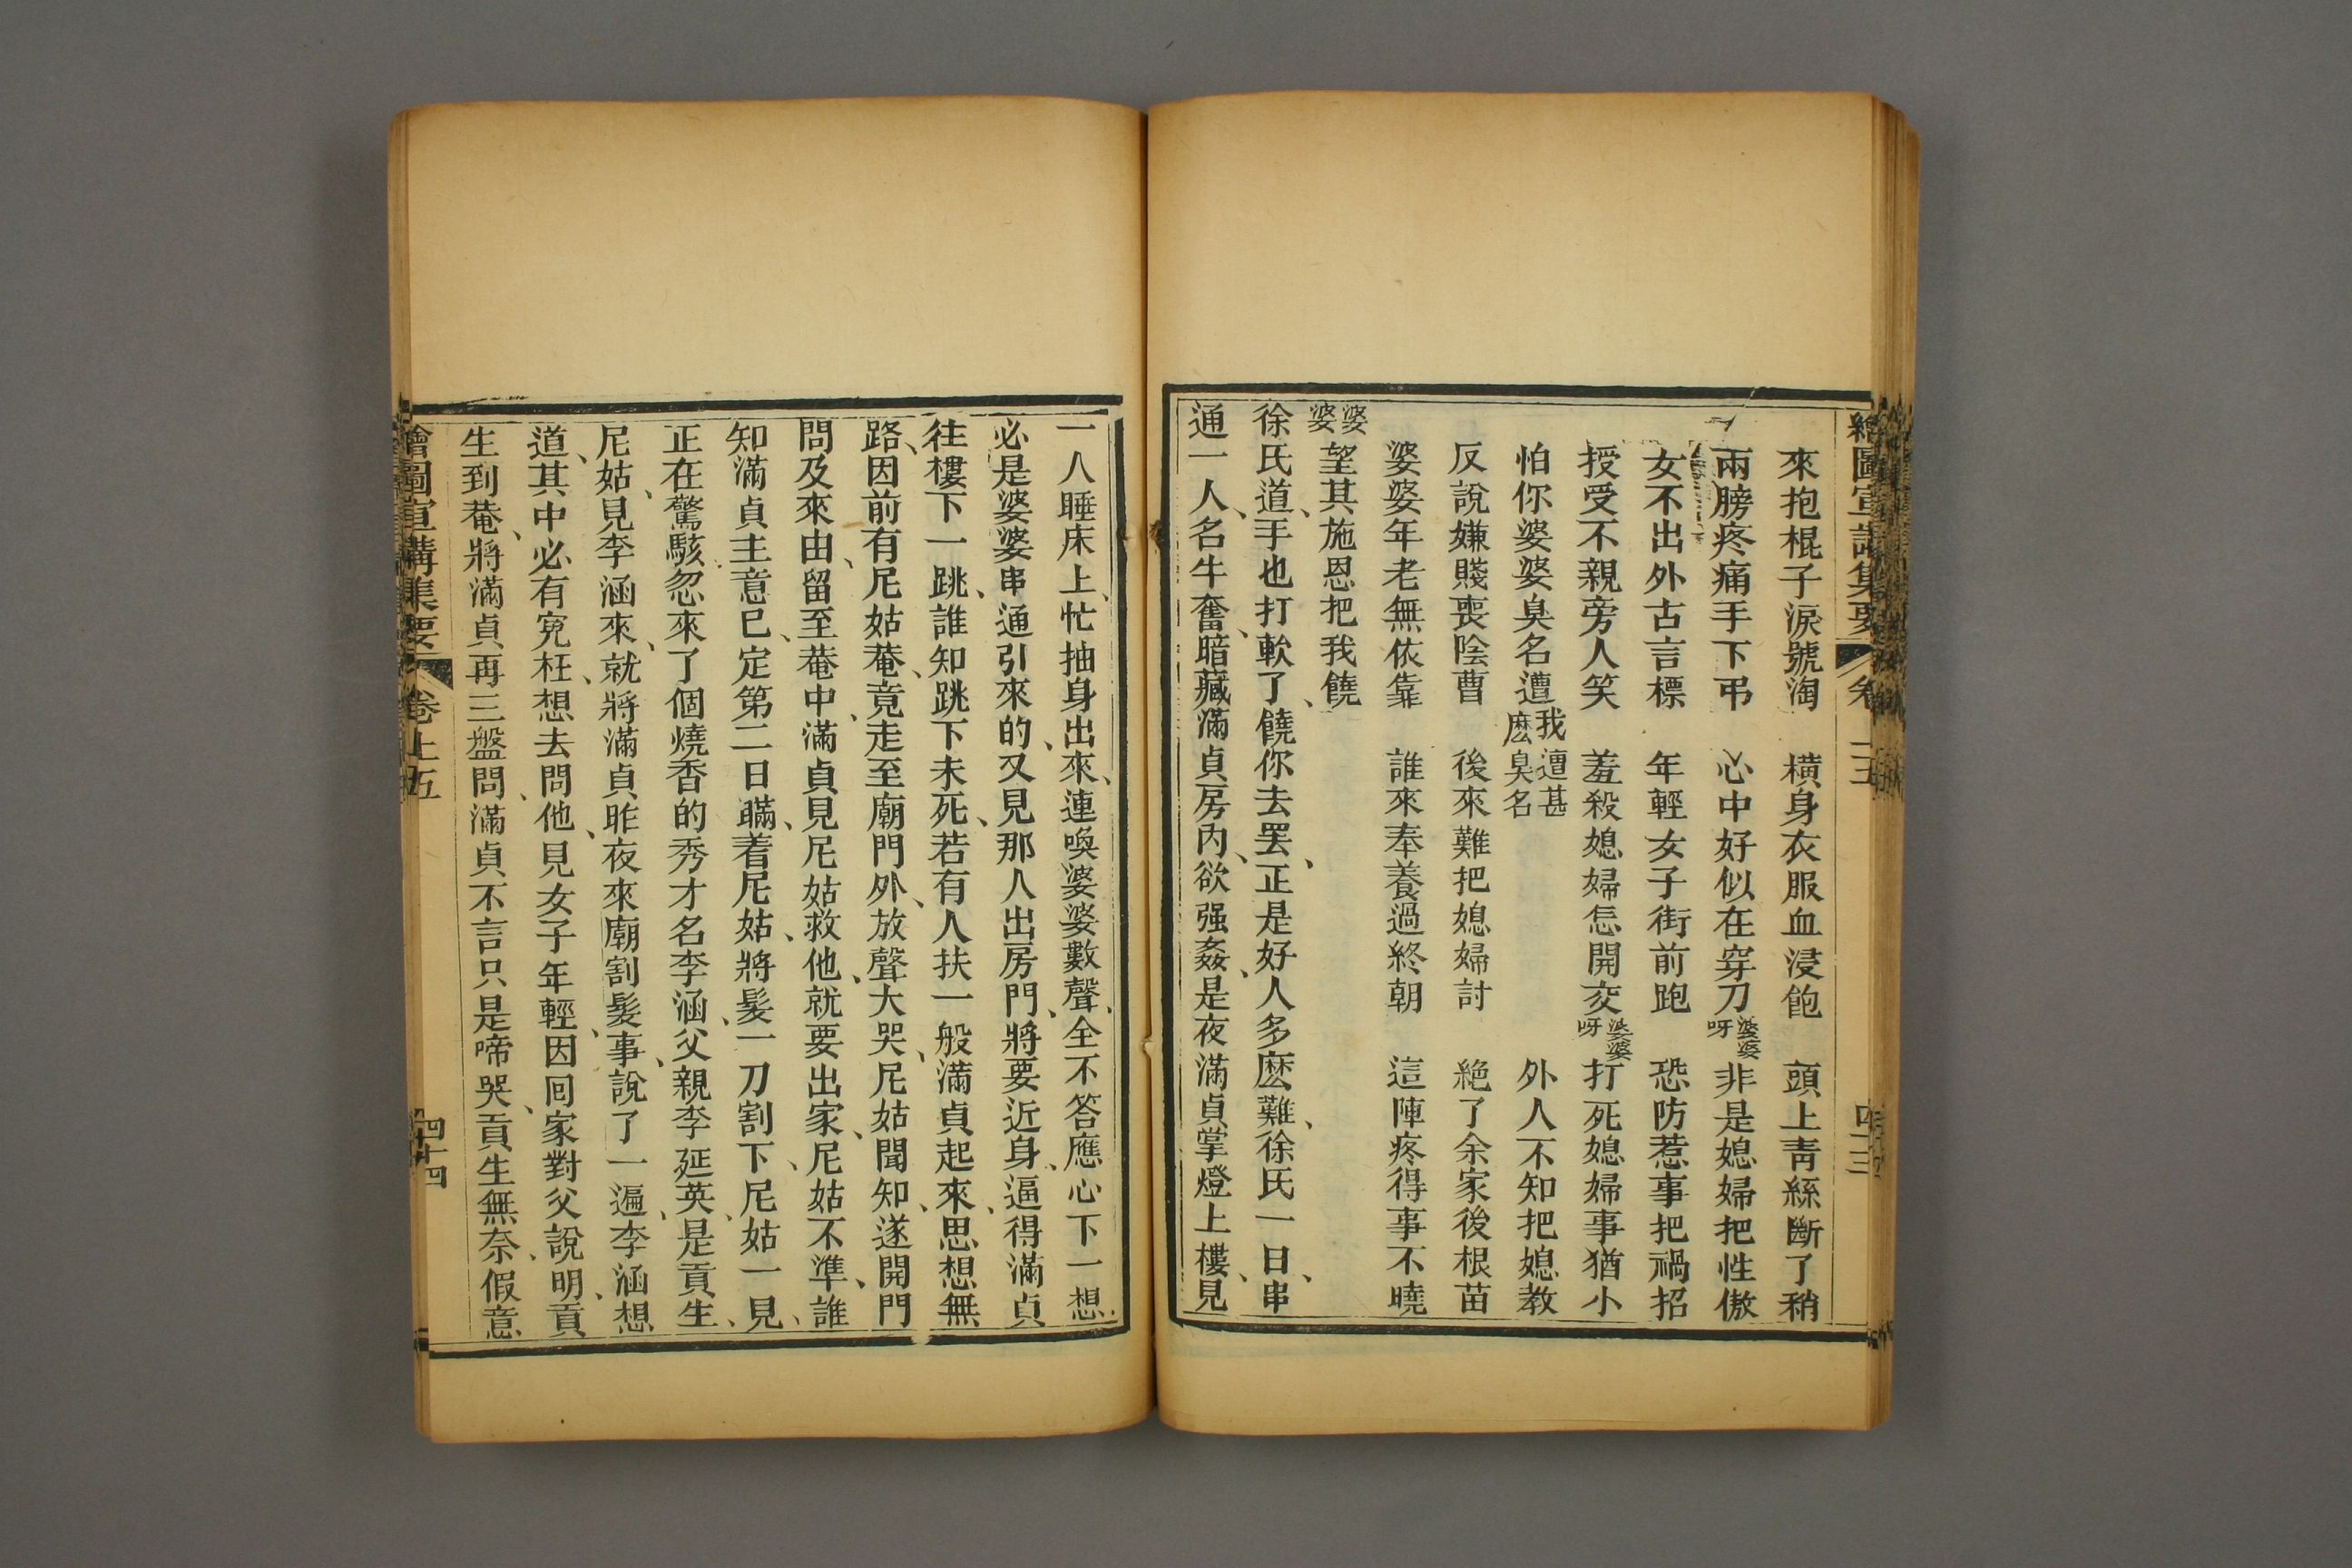 繪圖宣講集要 卷上五 四十三
來抱棍子淚號淘 橫身衣服血浸飽 頭上靑絲斷了稍
兩膀疼痛手下弔 心中好似在穿刀婆婆呀 非是媳婦把性傲
女不出外古言標 年輕女子街前跑 恐防惹事把禍招
授受不親旁人笑 羞殺媳婦怎開交婆婆呀 打死媳婦事猶小
怕你婆婆臭名遭我遭甚麽臭名 外人不知把媳敎
反說嫌賤喪陰曹 後來難把媳婦討 絕了余家後根苗
婆婆年老無依靠 誰來奉養過終朝 這陣疼得事不曉
婆婆望其施恩把我饒
徐氏道、手也打軟了、饒你去罷、正是好人多麽難、徐氏一日、串
通一人、名牛奮、暗藏滿貞房內、欲强姦、是夜滿貞掌燈上樓、見
一人睡床上、忙抽身出來、連喚婆婆數聲、全不答應心下一想
必是婆婆串通引來的、又見那人出房門、將要近身、逼得滿貞
往樓下一跳、誰知跳下未死、若有人扶一般滿貞起來、思想無
路、因前有尼姑菴、竟走至廟門外、放聲大哭、尼姑聞知、遂開門
問及來由、留至菴中、滿貞見尼姑救他、就要出家、尼姑不準、誰
知滿貞主意已、定第二日瞞、着尼姑、將髮一刀割下、尼姑一見、
正在驚駭忽來了個燒香的秀才名李涵、父親李延英、是貢生、
尼姑、見李涵來、就將滿貞昨夜來廟割髮事、說了一遍、李涵想
道、其中必有冤枉、想去問他、見女子年輕、因囘家對父說明、貢
生到菴、將滿貞再三盤問、滿貞不言只是啼哭、貢生無奈、假意
繪圖宣講集要 卷上五 四十四